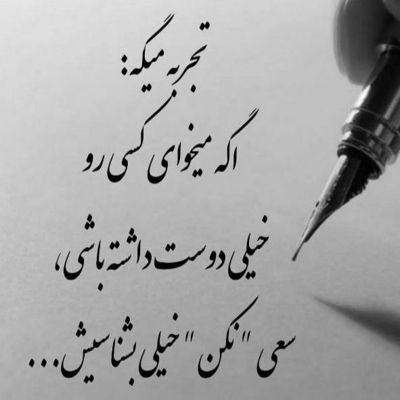 تجربه میگه:
اگه میخوای کسی رو
خیلی دوست داشته باشی،
سعی "نکن" خیلی بشناسیش...